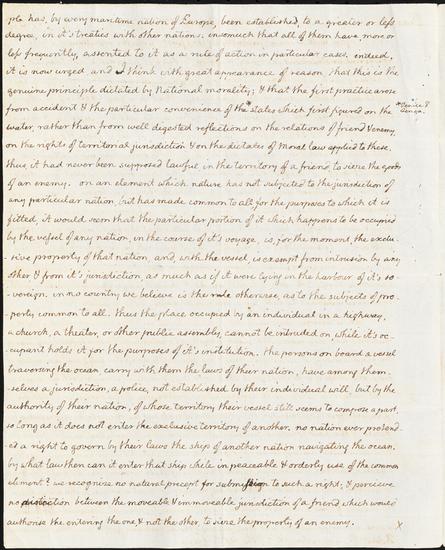 ple has, by every maritime nation of Europe, been established, to a greater or less
degree, in it's treaties with other nations; insomuch that all of them have, more or
less frequently, assented to it as a rule of action in particular cases. indeed,
it is now urged, and I think with great appearance of reason, that this is the
genuine principle dictated by National morality; & that the first practice arose
from accident & the particular convenience of the* states which first figured on the
*Venice &
Genoa.
water, rather than from well digested reflections on the relations of friend & enemy,
on the rights of territorial jurisdiction & on the dictates of Moral law applied to these.
thus, it had never been supposed lawful, in the territory of a friend to sieze the goods
of an enemy. on an element which nature has not subjected to the jurisdiction of
any particular nation, but has made common to all for the purposes to which it is
fitted, it would seem that the particular portion of it which happens to be occupied
by the vessel of any nation, in the course of it's voyage, is, for the moment, the exclu-
-sive property of that nation, and, with the vessel, is exempt from intrusion by any
other & from it's jurisdiction, as much as if it were lying in the harbour of it's so-
-vereign. in no country we believe is the rule otherwise, as to the subjects of pro-
-perty common to all. thus the place occupied by an individual in a highway,
a church, a theater, or other public assembly, cannot be intruded on, while it's oc-
-cupant holds it for the purposes of it's institution. the persons on board a vessel
traversing the ocean, carry with them the laws of their nation, have among them-
-selves a jurisdiction, a police, not established by their individual will, but by the
authority of their nation, of whose territory their vessel still seems to compose a part,
so long as it does not enter the exclusive territory of another. no nation ever pretend-
-ed a right to govern by their laws the ship of another nation navigating the ocean.
by what law then can it enter that ship while in peaceable & orderly use of the common
element? we recognise no natural precept for submission to such a right; & percieve
no distinction between the moveable & immoveable jurisdiction of a friend which would
authorise the entering the one, & not the other, to sieze the property of an enemy.
x